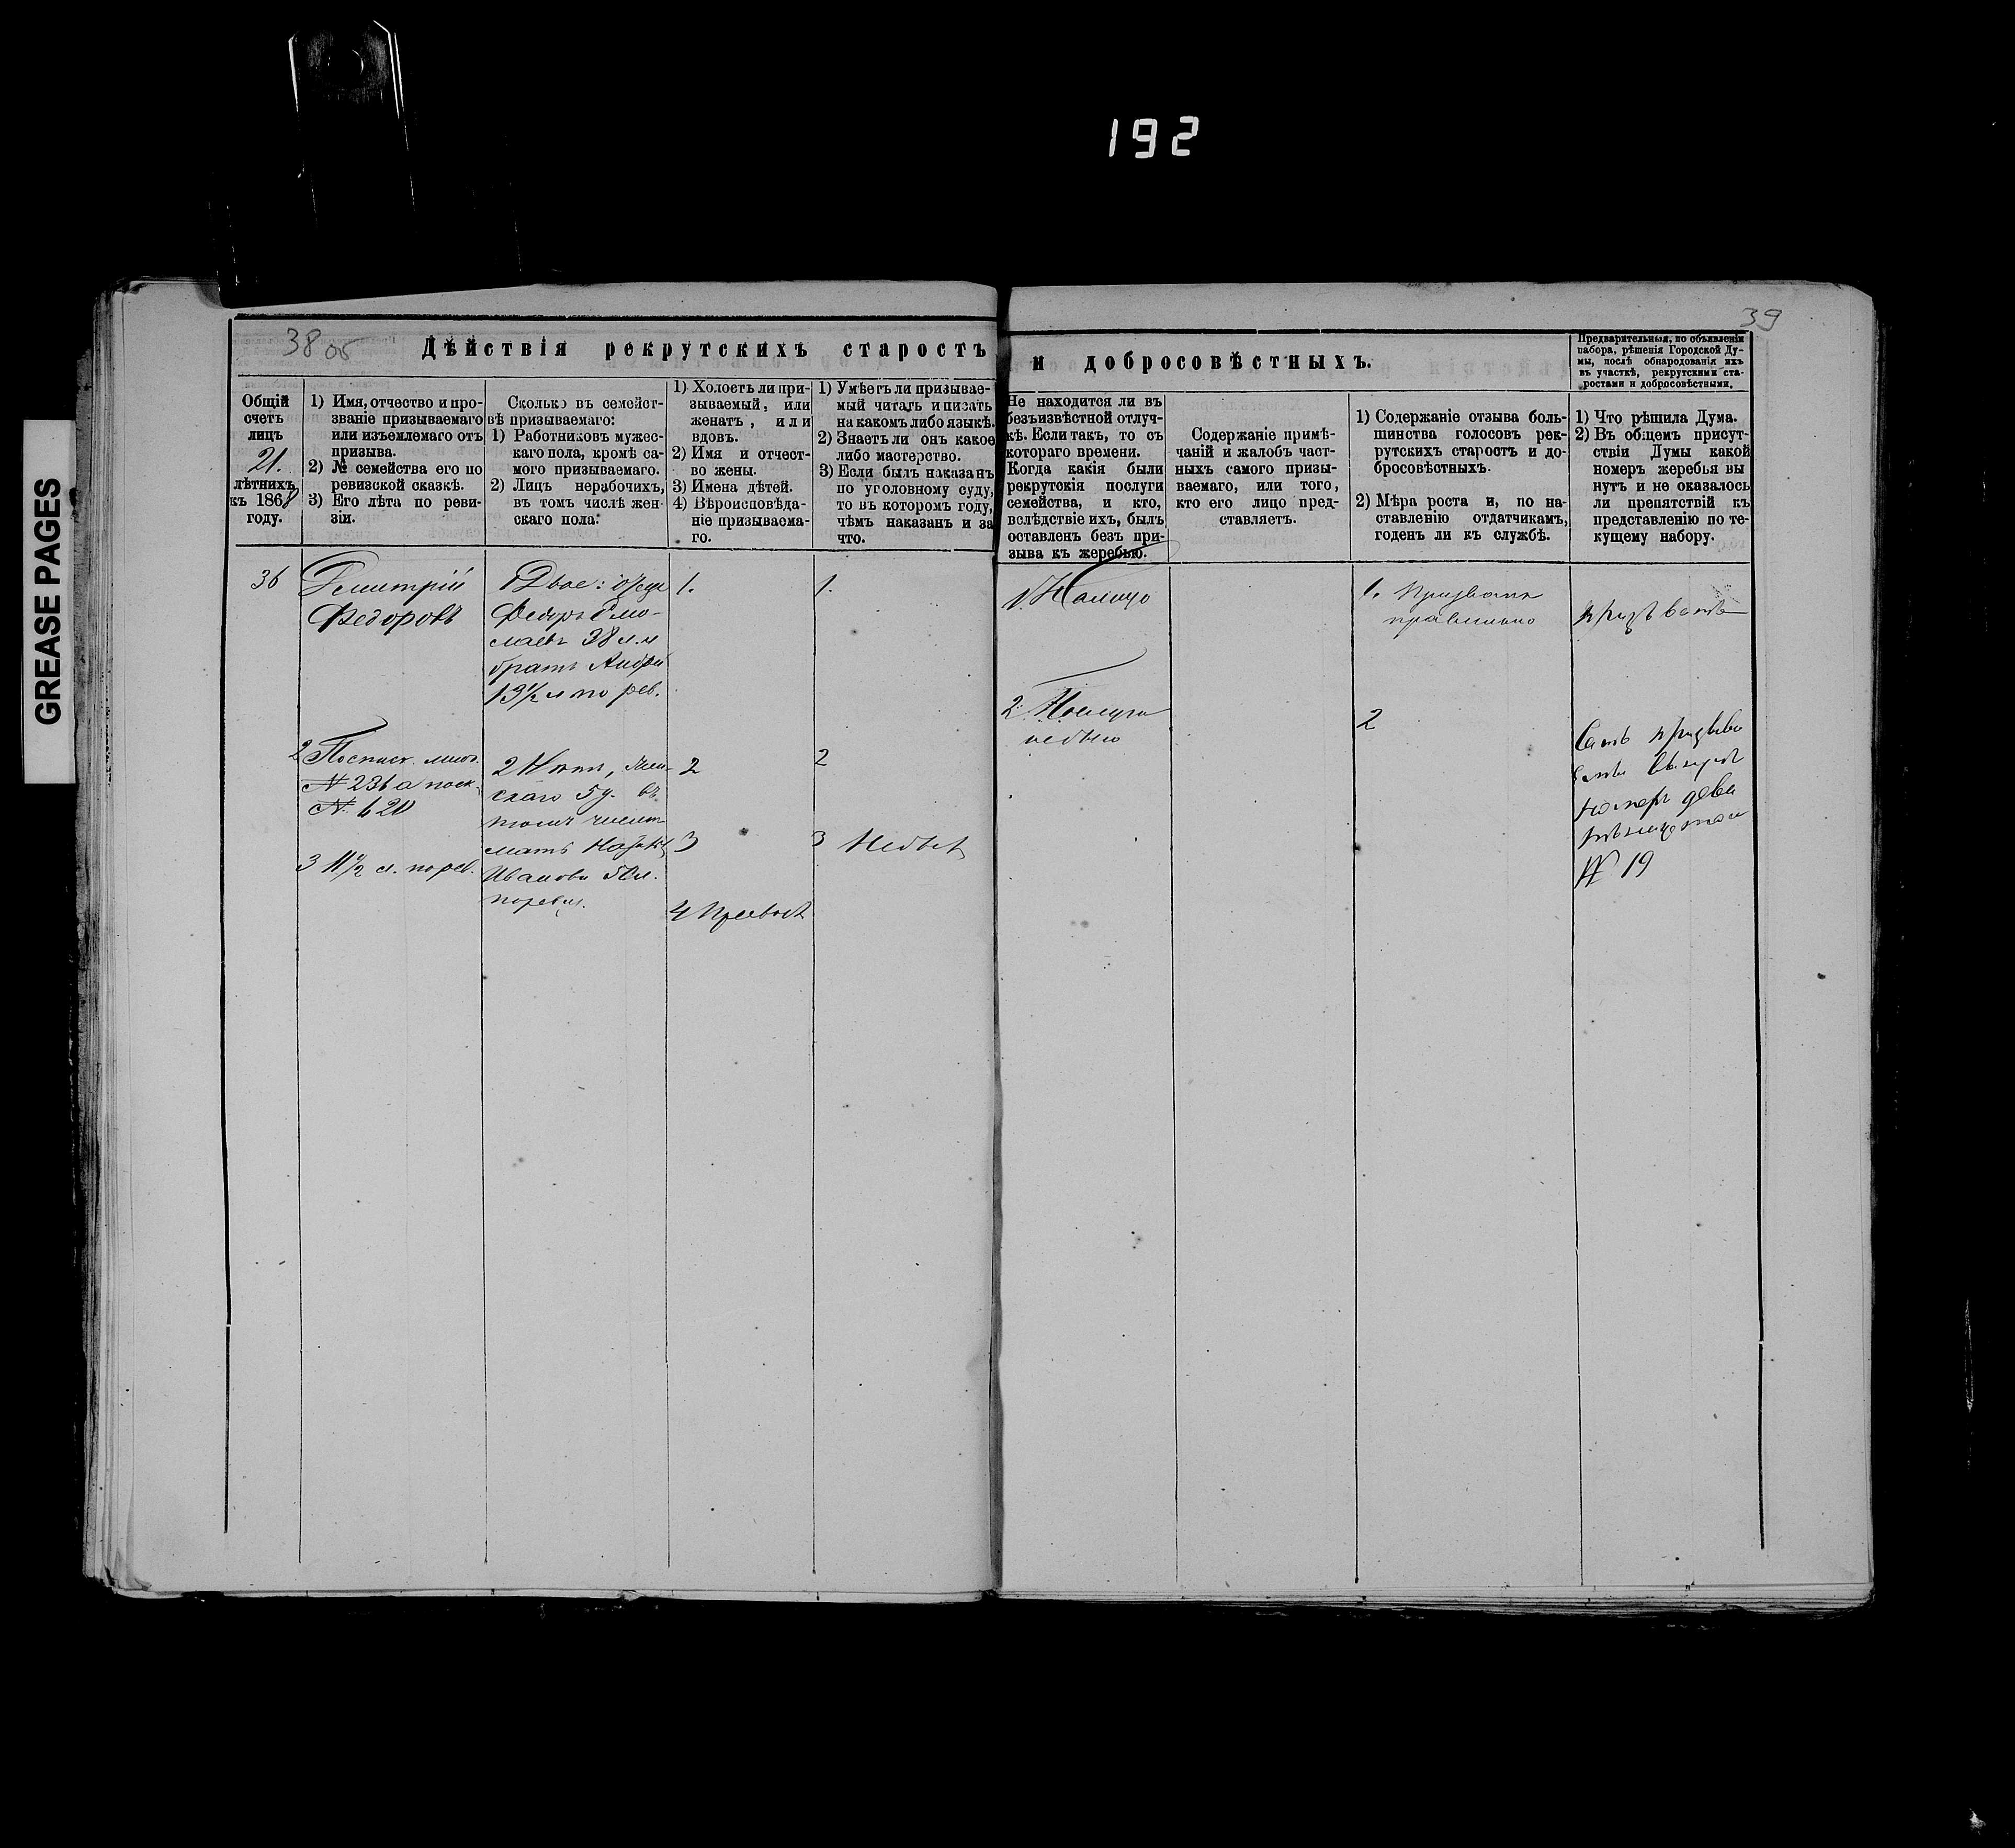 192
GREASE PAGES
38 об
39
Дѣйствія рекрутскихъ старостъ и добросовѣстныхъ.
Предварительныя, по объявленіи
набора, рѣшенія Городской Ду-
мы, послѣ обнародованія ихъ
въ участкѣ, рекрутскими ста-
ростами и добросовѣстными.
Общій
счетъ
лицъ
21.
лѣтнихъ
къ 1868
году.
1) Имя, отчество и про-
званіе призываемаго
или изъемлемаго отъ
призыва.
2) № семейства его по
ревизской сказкѣ.
3) Его лѣта по реви-
зіи.
Сколько въ семейст-
вѣ призываемаго:
1) Работниковъ мужес-
каго пола, кромѣ са-
мого призываемаго.
2) Лицъ нерабочихъ,
въ томъ числѣ жен-
скаго пола.
1) Холостъ ли при-
зываемый, или
женатъ, или
вдовъ.
2) Имя и отчест-
во жены.
3) Имена дѣтей.
4) Вѣроисповѣда-
ніе призываема-
го.
1) Умѣетъ ли призывае-
мый читать и писать
на какомъ либо языкѣ.
2) Знаетъ ли онъ какое
либо мастерство.
3) Если былъ наказанъ
по уголовному суду,
то въ которомъ году,
чѣмъ наказанъ и за
что.
Не находится ли въ
безъизвѣстной отлуч-
кѣ. Если такъ, то съ
котораго времени.
Когда какія были
рекрутскія послуги
семейства, и кто,
вслѣдствіе ихъ, былъ
оставленъ безъ при-
зыва къ жеребью.
Содержаніе примѣ-
чаній и жалобъ част-
ныхъ самого призы-
ваемаго, или того,
кто его лицо пред-
ставляетъ.
1) Содержаніе отзыва боль-
шинства голосовъ рек-
рутскихъ старостъ и до-
бросовѣстныхъ.
2) Мѣра роста и, по на-
ставленію отдатчикамъ,
годенъ ли къ службѣ.
1) Что рѣшила Дума.
2) Въ общемъ присут-
ствіи Думы какой
номеръ жеребья вы
нутъ и не оказалось
ли препятствій къ
представленію по те-
кущему набору.
36
Дмитрій
Федоровъ
2
№ 236 а
№ 620
3 11½ л. по рев.
Двое: отецъ
Федоръ
38 л. и
братъ Андрей
13½ л по рев.
2 женс-
каго 5 ч. въ
томъ числѣ
мать
Иванова 50 л.
по ревиз.
1.
2
3
4 Правосл
1.
2
3 Небылъ
1. Налицо
2. Послуги
небыло
1. Призванъ
правильно
2
призвать
Самъ
вынулъ
номеръ девя
тнадцатый
№ 19